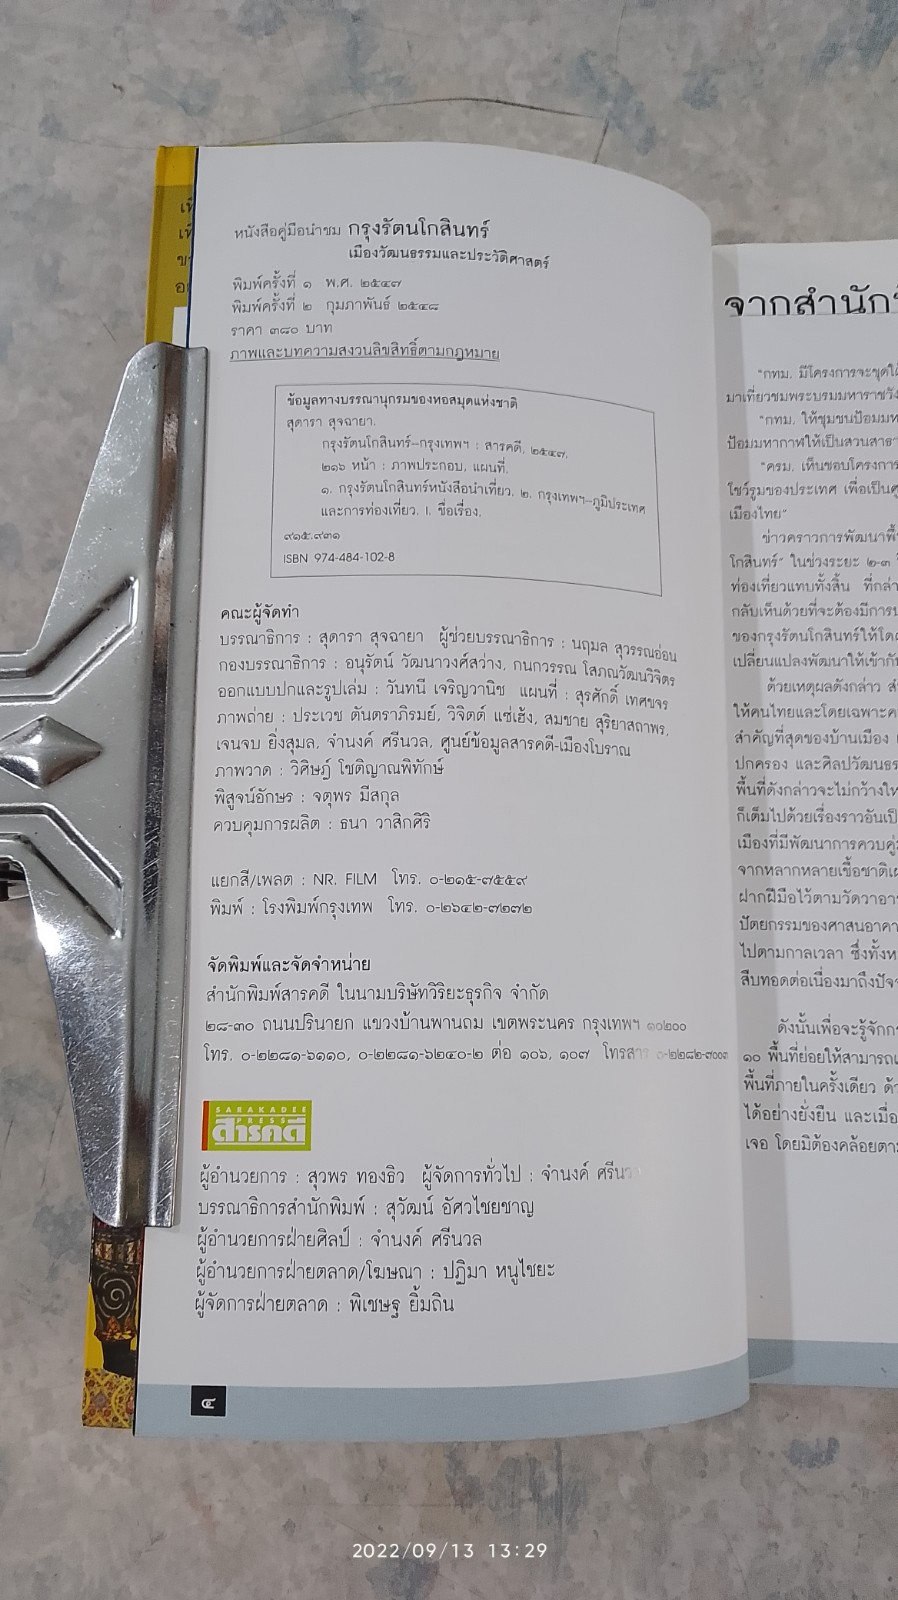 หนังสือคู่มือนำชม กรุงรัตนโกสินทร์
เมืองวัฒนธรรมและประวัติศาสตร์
พิมพ์ครั้งที่ ๑ พ.ศ. ๒๕๔๗
พิมพ์ครั้งที่ ๒ กุมภาพันธ์ ๒๕๔๘
ราคา ๓๘๐ บาท
ภาพและบทความสงวนลิขสิทธิ์ตามกฎหมาย
ข้อมูลทางบรรณานุกรมของหอสมุดแห่งชาติ
สุดารา สุจฉายา.
กรุงรัตนโกสินทร์--กรุงเทพฯ : สารคดี, ๒๕๔๗.
๒๑๖ หน้า : ภาพประกอบ, แผนที่.
๑. กรุงรัตนโกสินทร์หนังสือนำเที่ยว. ๒. กรุงเทพฯ--ภูมิประเทศ
และการท่องเที่ยว. I. ชื่อเรื่อง.
๙๑๕.๙๓๑
ISBN 974-484-102-8
คณะผู้จัดทำ
บรรณาธิการ : สุดารา สุจฉายา ผู้ช่วยบรรณาธิการ : นฤมล สุวรรณอ่อน
กองบรรณาธิการ : อนุรัตน์ วัฒนาวงศ์สว่าง, กนกวรรณ โสภณวัฒนวิจิตร
ออกแบบปกและรูปเล่ม : วันทนี เจริญวานิช แผนที่ : สุรศักดิ์ เทศขจร
ภาพถ่าย : ประเวช ตันตราภิรมย์, วิจิตต์ แซ่เฮ้ง, สมชาย สุริยาสถาพร,
เจนจบ ยิ่งสุมล, จำนงค์ ศรีนวล, ศูนย์ข้อมูลสารคดี-เมืองโบราณ
ภาพวาด : วิศิษฎ์ โชติญาณพิทักษ์
พิสูจน์อักษร : จตุพร มีสกุล
ควบคุมการผลิต : ธนา วาสิกศิริ
แยกสี/เพลต : NR. FILM โทร. ๐-๒๑๕-๗๕๕๙
พิมพ์ : โรงพิมพ์กรุงเทพ โทร. ๐-๒๖๔๒-๗๒๗๒
จัดพิมพ์และจัดจำหน่าย
สำนักพิมพ์สารคดี ในนามบริษัทวิริยะธุรกิจ จำกัด
๒๘-๓๐ ถนนปรินายก แขวงบ้านพานถม เขตพระนคร กรุงเทพฯ ๑๐๒๐๐
โทร. ๐-๒๒๘๑-๖๑๑๐, ๐-๒๒๘๑-๖๒๔๐-๒ ต่อ ๑๐๖, ๑๐๗ โทรสาร ๐-๒๒๘๒-๗๐๐๓
SARAKADEE
PRESS
สารคดี
ผู้อำนวยการ : สุวพร ทองธิว ผู้จัดการทั่วไป : จำนงค์ ศรีนว
บรรณาธิการสำนักพิมพ์ : สุวัฒน์ อัศวไชยชาญ
ผู้อำนวยการฝ่ายศิลป์ : จำนงค์ ศรีนวล
ผู้อำนวยการฝ่ายตลาด/โฆษณา : ปฏิมา หนูไชยะ
ผู้จัดการฝ่ายตลาด : พิเชษฐ ยิ้มถิน
๔
จากสำนัก
"กทม. มีโครงการจะขุดใ
มาเที่ยวชมพระบรมมหาราชวัง
"กทม. ให้ชุมชนป้อมมห
ป้อมมหากาฬให้เป็นสวนสาธา
"ครม. เห็นชอบโครงการ
โชว์รูมของประเทศ เพื่อเป็น
เมืองไทย"
ข่าวคราวการพัฒนาพื้
โกสินทร์" ในช่วงระยะ ๒-๓
ท่องเที่ยวแทบทั้งสิ้น ที่กล่า
กลับเห็นด้วยที่จะต้องมีการ
ของกรุงรัตนโกสินทร์ให้โด
เปลี่ยนแปลงพัฒนาให้เข้ากั
ด้วยเหตุผลดังกล่าว
ให้คนไทยและโดยเฉพาะค
สำคัญที่สุดของบ้านเมือง
ปกครอง และศิลปวัฒนธร
พื้นที่ดังกล่าวจะไม่กว้างให
ก็เต็มไปด้วยเรื่องราวอันเป็
เมืองที่มีพัฒนาการควบคู่
จากหลากหลายเชื้อชาติเ
ฝากฝีมือไว้ตามวัดวาอา
ปัตยกรรมของศาสนอาคา
ไปตามกาลเวลา ซึ่งทั้งห
สืบทอดต่อเนื่องมาถึงปัจ
ดังนั้นเพื่อจะรู้จักก
๑๐ พื้นที่ย่อยให้สามารถ
พื้นที่ภายในครั้งเดียว ด้
ได้อย่างยั่งยืน และเมื่อ
เจอ โดยมิต้องคล้อยตา
2022/09/13 13:29